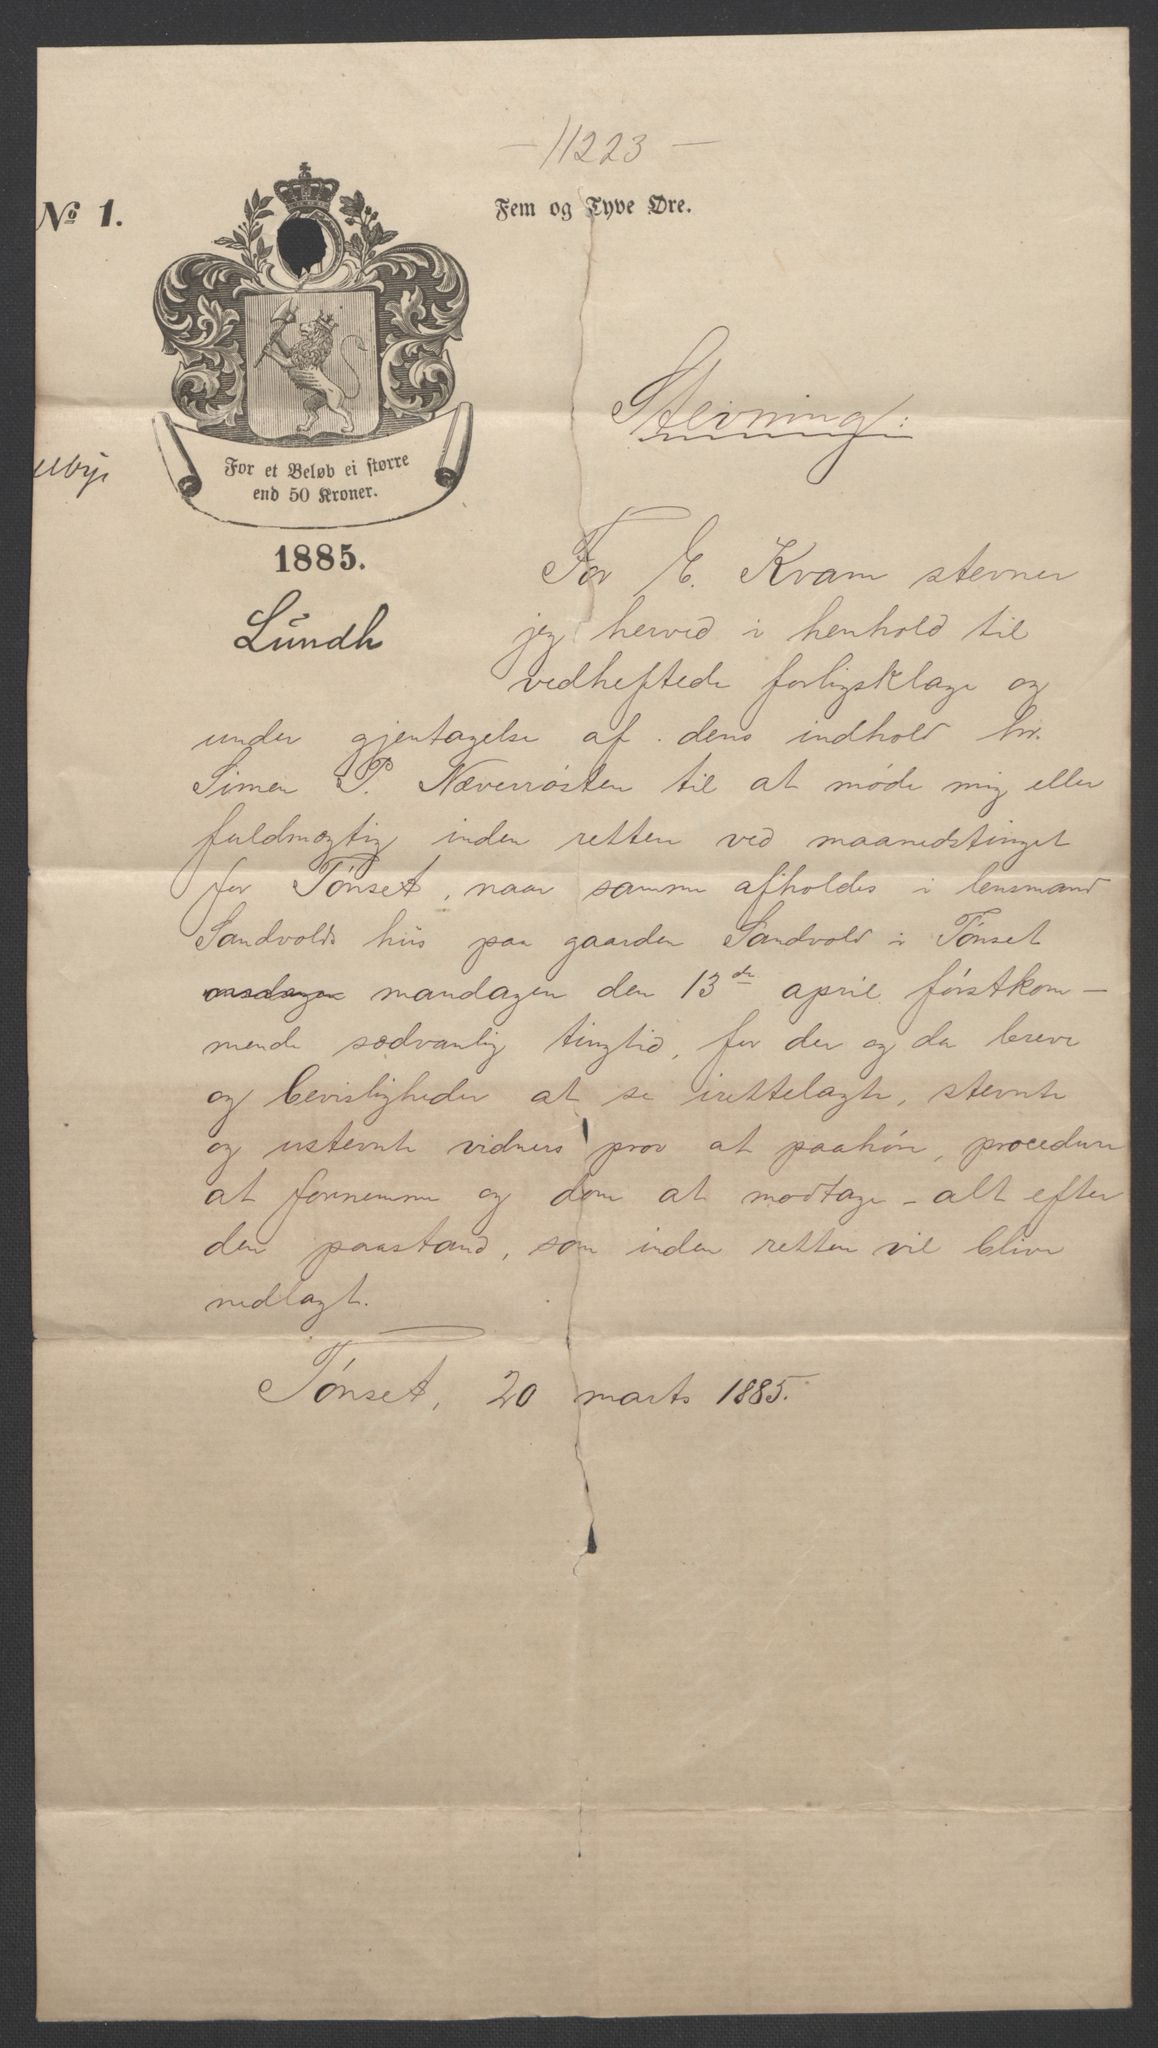 — 11223 —
No 1.
Fem og Tyve Øre.
Stevning:
For et Beløb ei større
end 50 Kroner.
1885.
Lundh
For E. Kvam stevner
jeg herved i henhold til
vedheftede forligsklage og
under gjentagelse af dens indhold hr.
Simen P. Næverrøsten til at møde mig eller
fuldmægtig inden retten ved maanedstinget
for Tønset, naar samme afholdes i lensmand
Sandvolds hus paa gaarden Sandvold i Tønset
onsdagen mandagen den 13de april førstkom-
mende sædvanlig tingtid, for der og da breve
og bevisligheder at se irettelagte, stevnte
og ustevnte vidners prov at paahøre, procedure
at fornemme og dom at modtage – alt efter
den paastand, som inden retten vil blive
nedlagt.
Tønset, 20 marts 1885.